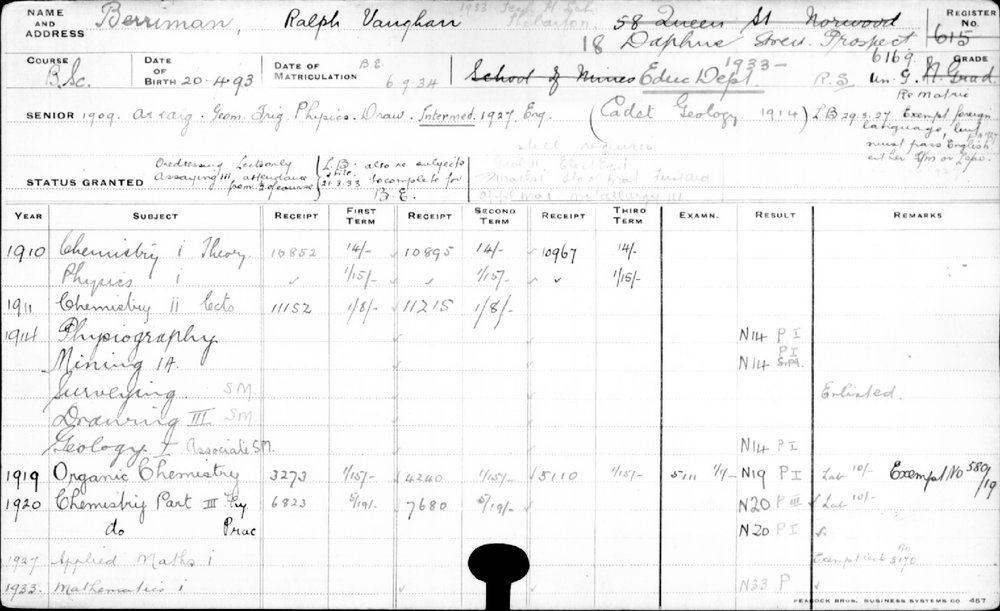 NAME AND ADDRESS Berriman, Ralph Vaughan 58 Queen St Norwood REGISTER No. 615
18 Daphne Street Prospect 6169
COURSE B.Sc. DATE OF BIRTH 20-4-93 DATE OF MATRICULATION B.E. 6-9-34 School of Mines Educ Dept 1933- R.S. GRADE Un. G.
SENIOR 1909. Geom. Trig. Physics. Draw. Intermed. 1927. Eng. (Cadet Geology 1914) LB 29.3.27 Exempt foreign language, but must pass English
still requires
STATUS GRANTED Oredressing Lects only Assaying III, attendance L.B. 21.3.33 also re subjects to complete for B.E.
YEAR SUBJECT RECEIPT FIRST TERM RECEIPT SECOND TERM RECEIPT THIRD TERM EXAMN. RESULT REMARKS
1910 Chemistry i Theory 10852 14/- 10895 14/- 10967 14/-
Physics i 1/15/- 1/15/- 1/15/-
1911 Chemistry ii Lects 11152 1/8/- 11215 1/8/-
1914 Physiography N14 P I
Mining 1A. N14 P I
Surveying S.M. Enlisted.
Drawing III S.M.
Geology I Associate S.M. N14 P I
1919 Organic Chemistry 3273 1/15/- 4240 1/15/- 5110 1/15/- 5111 1/1/- N19 P I Lab 10/- Exempt No 580/19
1920 Chemistry Part III Thy 6823 5/19/- 7680 5/19/- N20 P III Lab 10/-
do Prac N20 P I
1927 Applied Maths i Exempt No 5170
1933. Mathematics i N33 P
PEACOCK BROS. BUSINESS SYSTEMS CO 457